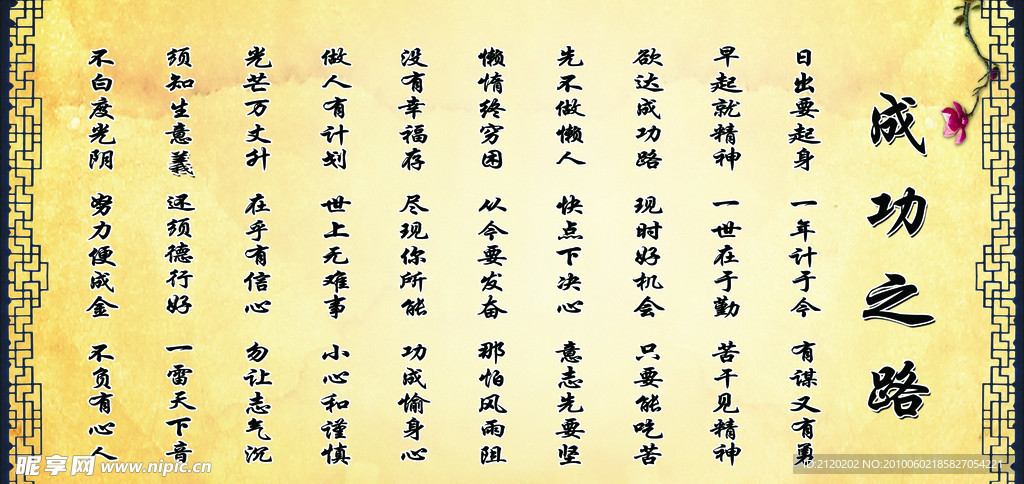 成功之路
日出要起身 一年计于今 有谋又有勇
早起就精神 一世在于勤 苦干见精神
欲达成功路 现时好机会 只要能吃苦
先不做懒人 快点下决心 意志先要坚
懒惰终穷困 从今要发奋 那怕风雨阻
没有幸福存 尽现你所能 功成愉身心
做人有计划 世上无难事 小心和谨慎
光芒万丈升 在乎有信心 勿让志气沉
须知生意義 还须德行好 一雷天下音
不白度光阴 努力便成金 不负有心人
昵享网 www.nipic.cn
ID:2120202 NO:20100602185827054221